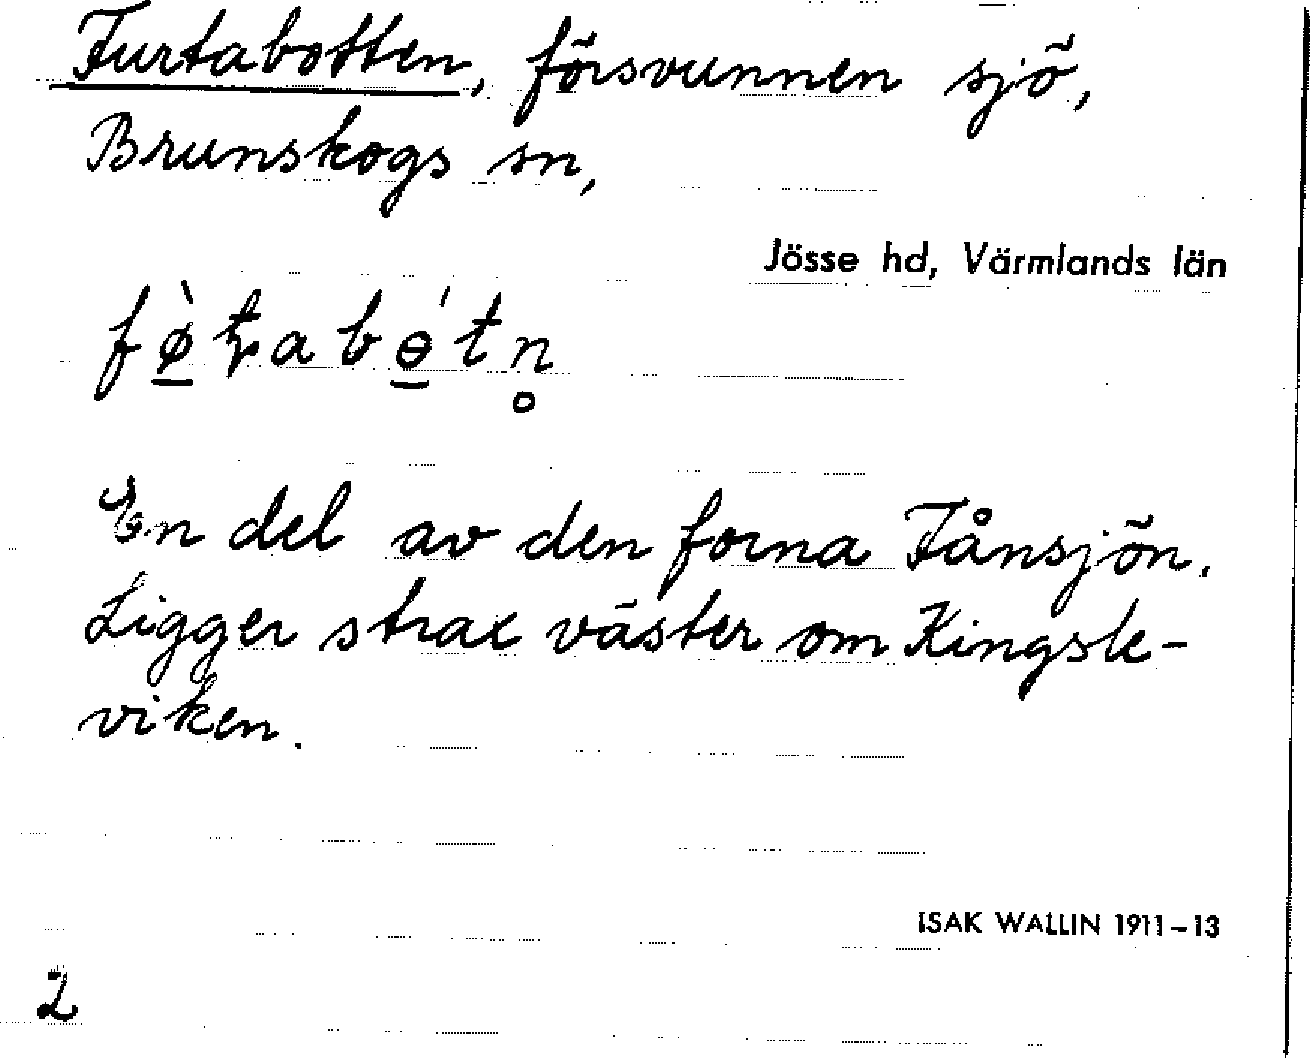 Furtabotten, försvunnen sjö,
Brunskogs sn,
Jösse hd, Värmlands län
fø̲̀ʈabɵ̲́tn̥
En del av den forna Fånsjön.
Ligger strax väster om Kingsle-
viken.
ISAK WALLIN 1911–13
2